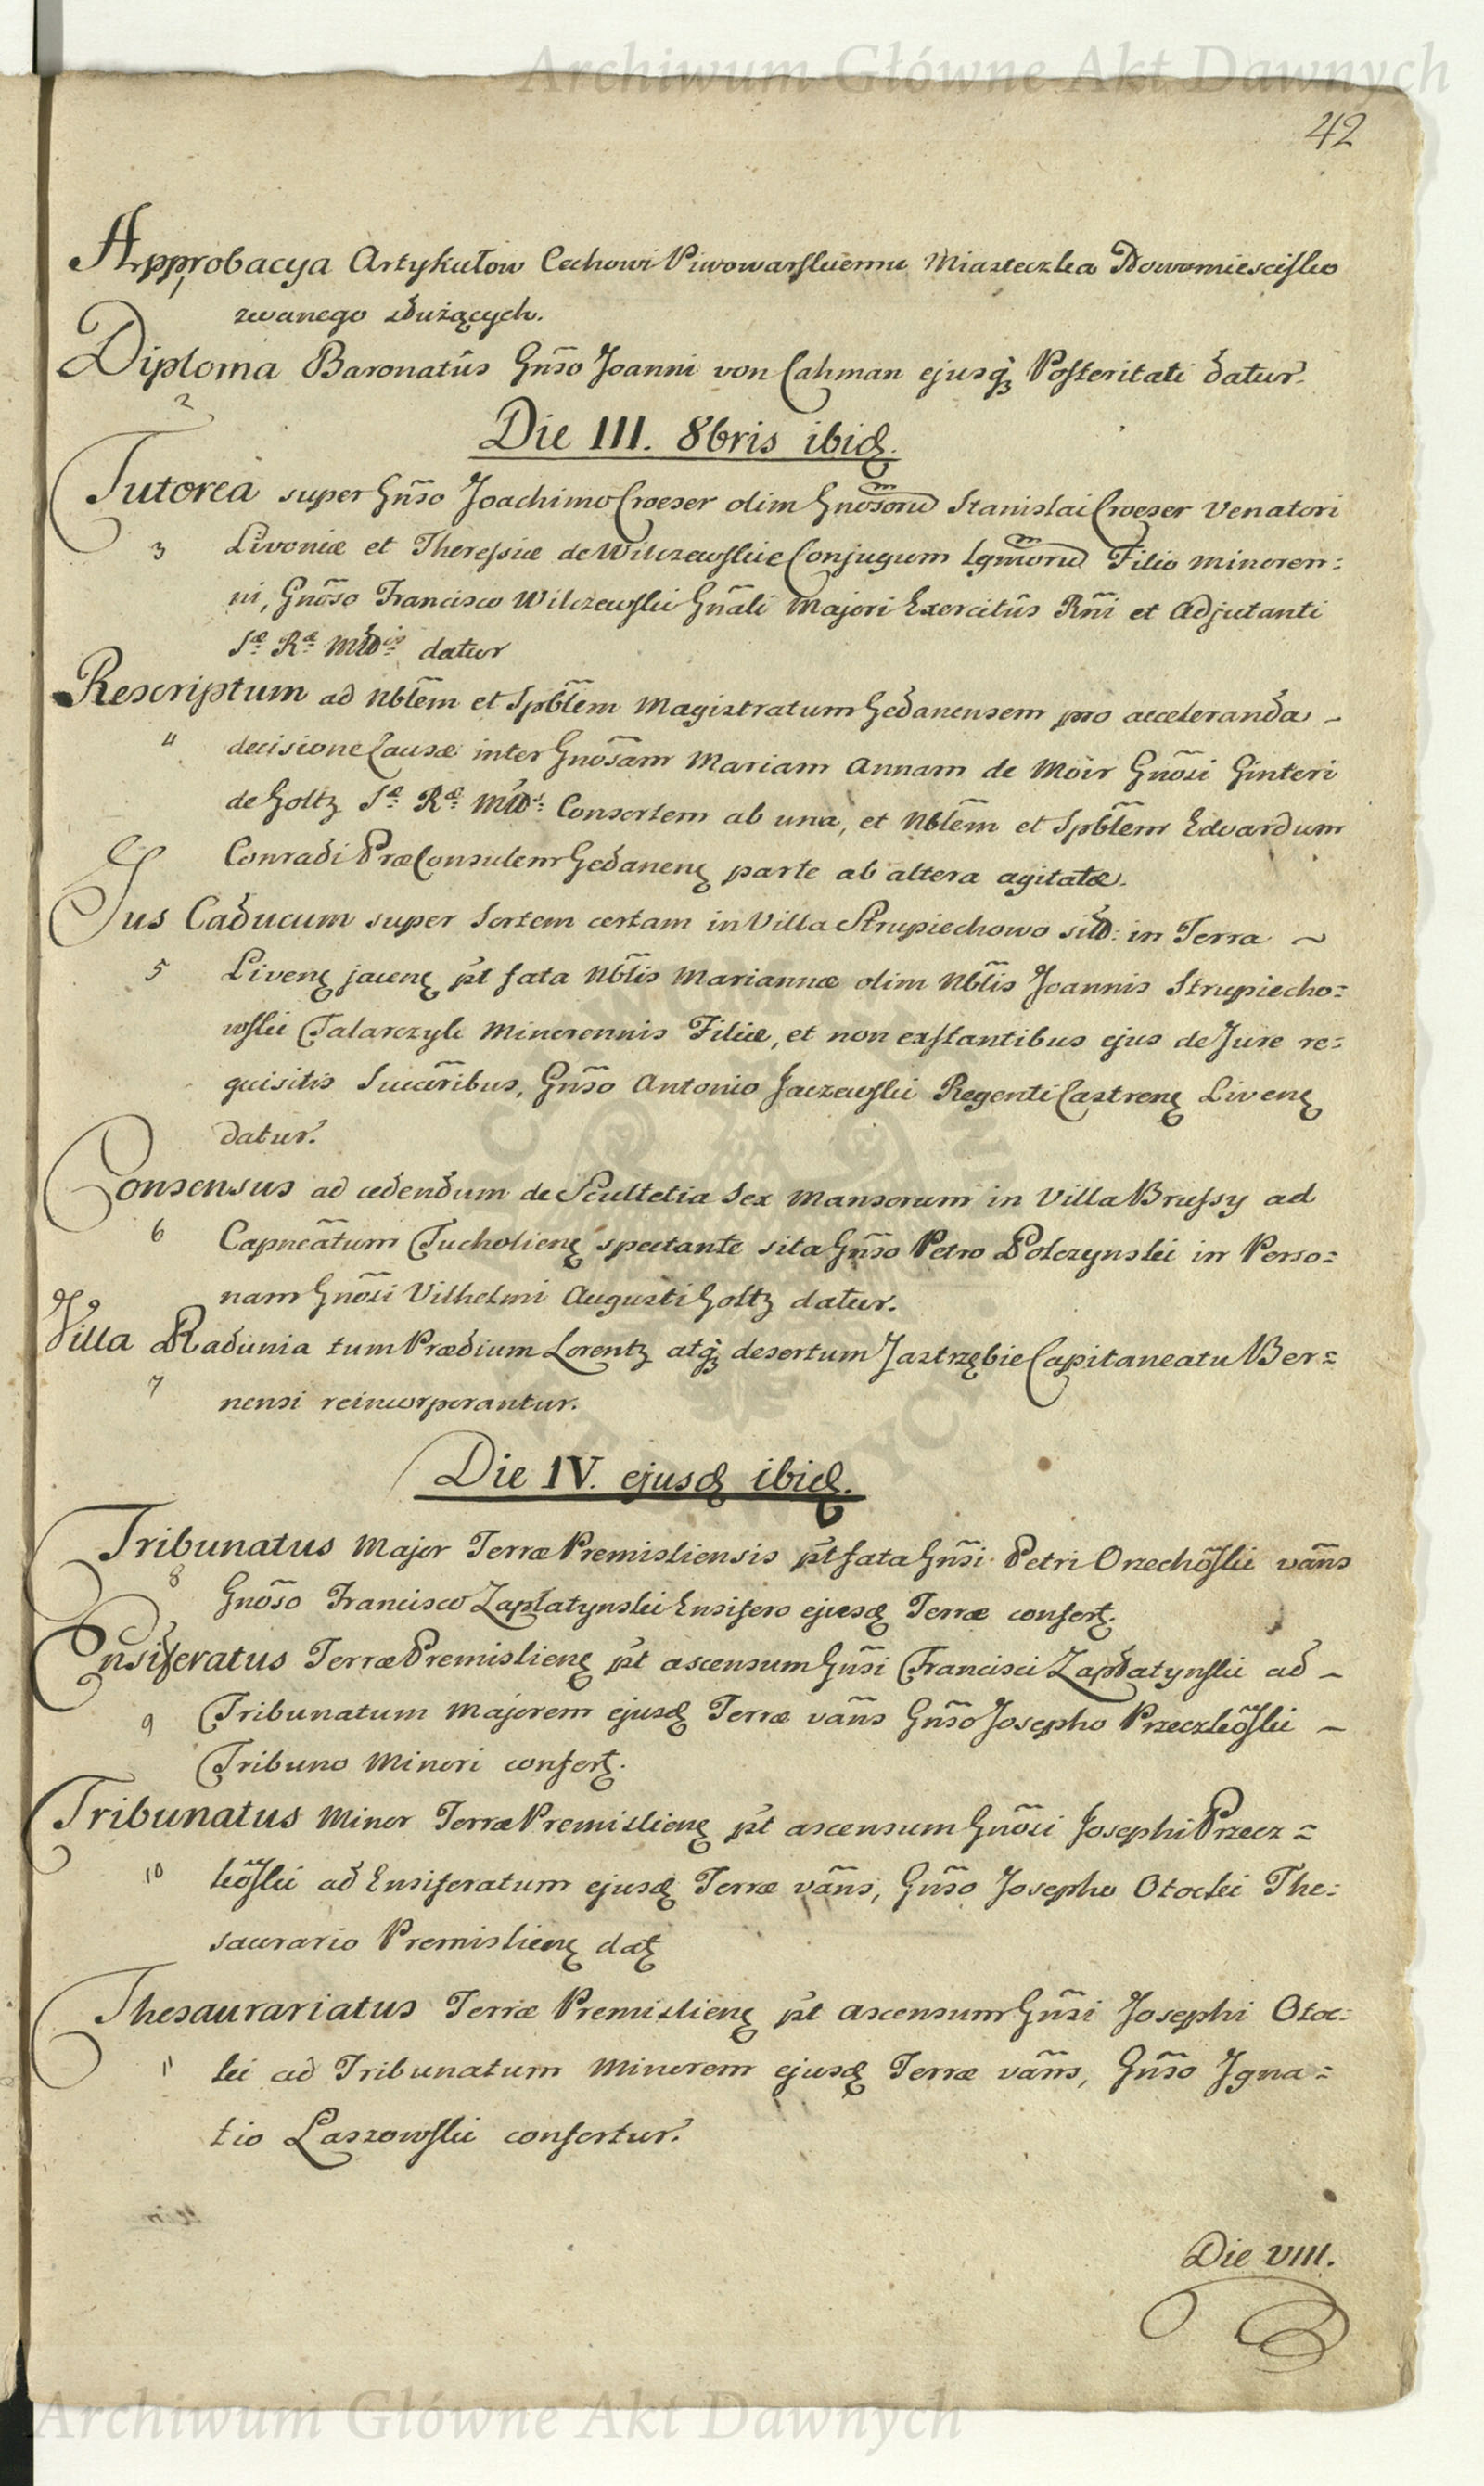 Archiwum Główne Akt Dawnych
42
Approbacya Artykułow Cechowi Piwowarskiemu Miasteczka Nowomiescisko
1
zwanego służących.
Diploma Baronatûs Gñso Joanni von Cahman ejusq́ʒ Posteritati datur.
2
Die III. 8bris ibid̨.
Tutorea super Gñso Joachimo Croeser olim Gnosorũ Stanislai Croeser Venatori
3 Livoniæ et Theressiæ de Wilczewskie Conjugum Lgmorũ Filio minoren:
ni, Gnõso Francisco Wilczewski Gñali Majori Exercitûs Rñi et Adjutanti
Sæ Ræ Mtis datur
Rescriptum ad Nbt̃em et Spbt̃em Magistratum Gedanensem pro acceleranda –
4 decisione Causæ inter Gnosãm Mariam Annam de Moir Gnõsi Ginteri
de Goltz Sæ Ræ Mtis Consortem ab una, et Nbt̃em et Spbt̃em Edvardum
Conradi Præ Consulem Gedanenȩ parte ab altera agitatæ.
Jus Caducum super Sortem certam in Villa Strupiechowo sit: in Terra ~
5 Livenȩ jacenȩ p̃t fata Nbt̃is Mariannæ olim Nbt̃is Joannis Strupiecho=
wski Talarczyk Minorennis Filiæ, et non exstantibus ejus de Jure re=
quisitis Succ̃ribus, Gñso Antonio Jaczewski Regenti Castrenȩ Livenȩ
datur.
Consensus ad cedendum de Scultetia Sex Mansorum in Villa Brussy ad
6 Capneãtum Tucholienȩ spectante sita Gñso Petro Polczynski in Perso=
nam Gnõsi Vilhelmi Augusti Goltz datur.
Villa Radunia tum Prædium Lorentz atq́ʒ desertum Jastrzębie Capitaneatu Ber=
7 nensi reincorporantur.
Die IV. ejusd̨ ibid̨.
Tribunatus Major Terræ Premisliensis p̃t fata Gñsi Petri Orzechõski vãns
8 Gnõso Francisco Zapłatynski Ensifero ejusd̨ Terræ confert̨.
Ensiferatus Terræ Premislienȩ p̃t ascensum Gñsi Francisci Zapłatynski ad –
9 Tribunatum Majorem ejusd̨ Terræ vãns Gñso Josepho Przeczkõski –
Tribuno Minori confert̨.
Tribunatus Minor Terræ Premislienȩ p̃t ascensum Gnõsi Josephi Przecz=
10 kõski ad Ensiferatum ejusd̨ Terræ vãns, Gñso Josepho Otocki The:
saurario Premislienȩ dat̨
Thesaurariatus Terræ Premislienȩ p̃t ascensum Gñsi Josephi Otoc:
11 ki ad Tribunatum Minorem ejusd̨ Terræ vãns, Gñso Jgna=
tio Laszowski confertur.
Die VIII.
Archiwum Główne Akt Dawnych